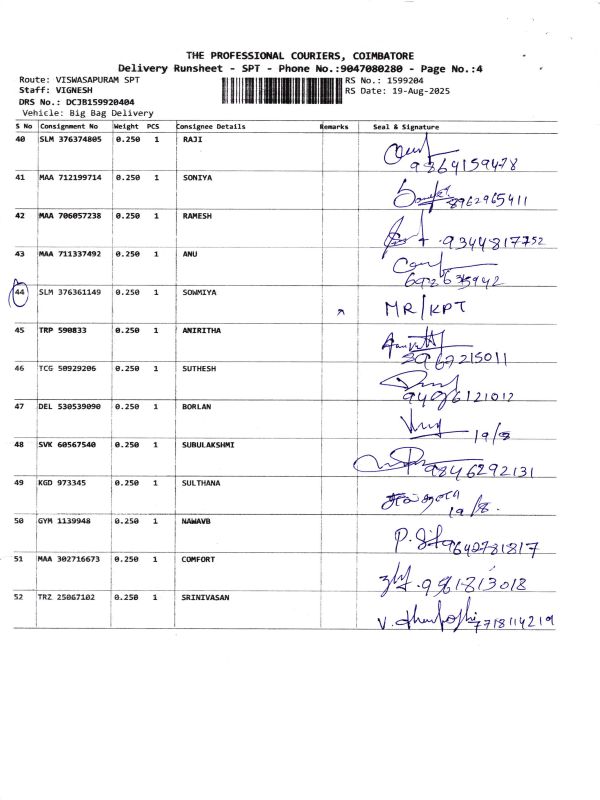 THE PROFESSIONAL COURIERS, COIMBATORE
Delivery Runsheet - SPT - Phone No.:9047080280 - Page No.:4
Route: VISWASAPURAM SPT RS No.: 1599204
Staff: VIGNESH RS Date: 19-Aug-2025
DRS No.: DCJB159920404
Vehicle: Big Bag Delivery
S No Consignment No Weight PCS Consignee Details Remarks Seal & Signature
40 SLM 376374805 0.250 1 RAJI
9864159478
41 MAA 712199714 0.250 1 SONIYA
8962965411
42 MAA 706057238 0.250 1 RAMESH
9344817752
43 MAA 711337492 0.250 1 ANU
44 SLM 376361149 0.250 1 SOWMIYA MR/KPT
45 TRP 590833 0.250 1 ANIRITHA
46 TCG 50929206 0.250 1 SUTHESH
47 DEL 530539090 0.250 1 BORLAN
19/8
48 SVK 60567540 0.250 1 SUBULAKSHMI
9846292131
49 KGD 973345 0.250 1 SULTHANA
19/8.
50 GYM 1139948 0.250 1 NAWAVB
51 MAA 302716673 0.250 1 COMFORT
52 TRZ 25067102 0.250 1 SRINIVASAN